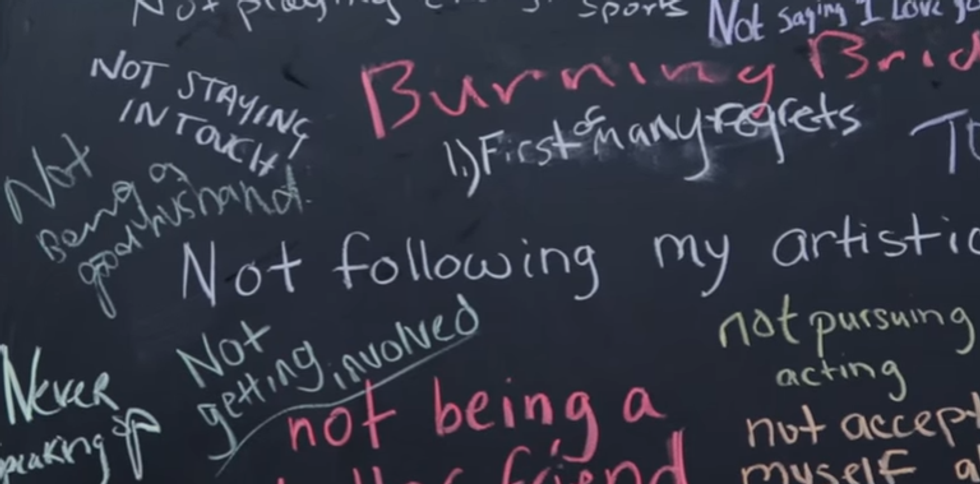 Not playing
sports
Not saying I Love
NOT STAYING
IN TOUCH!
Burning Brid
1.) First of many regrets
Not
Being a
good husband.
Not following my artistic
Not
getting involved
not pursuing
acting
Never
speaking up
not being a
friend
not accept
myself